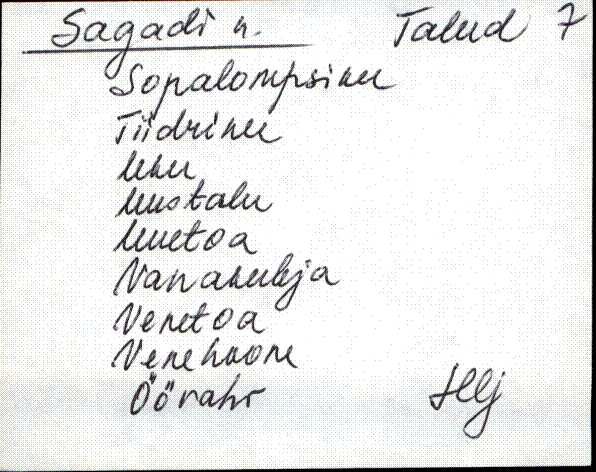 Sagadi k. Talud 7
Sopalompsiku
Tiidriku
Uku
Uustalu
Uuetoa
Vanakubja
Venetoa
Venekoone
Öörahr
Hlj